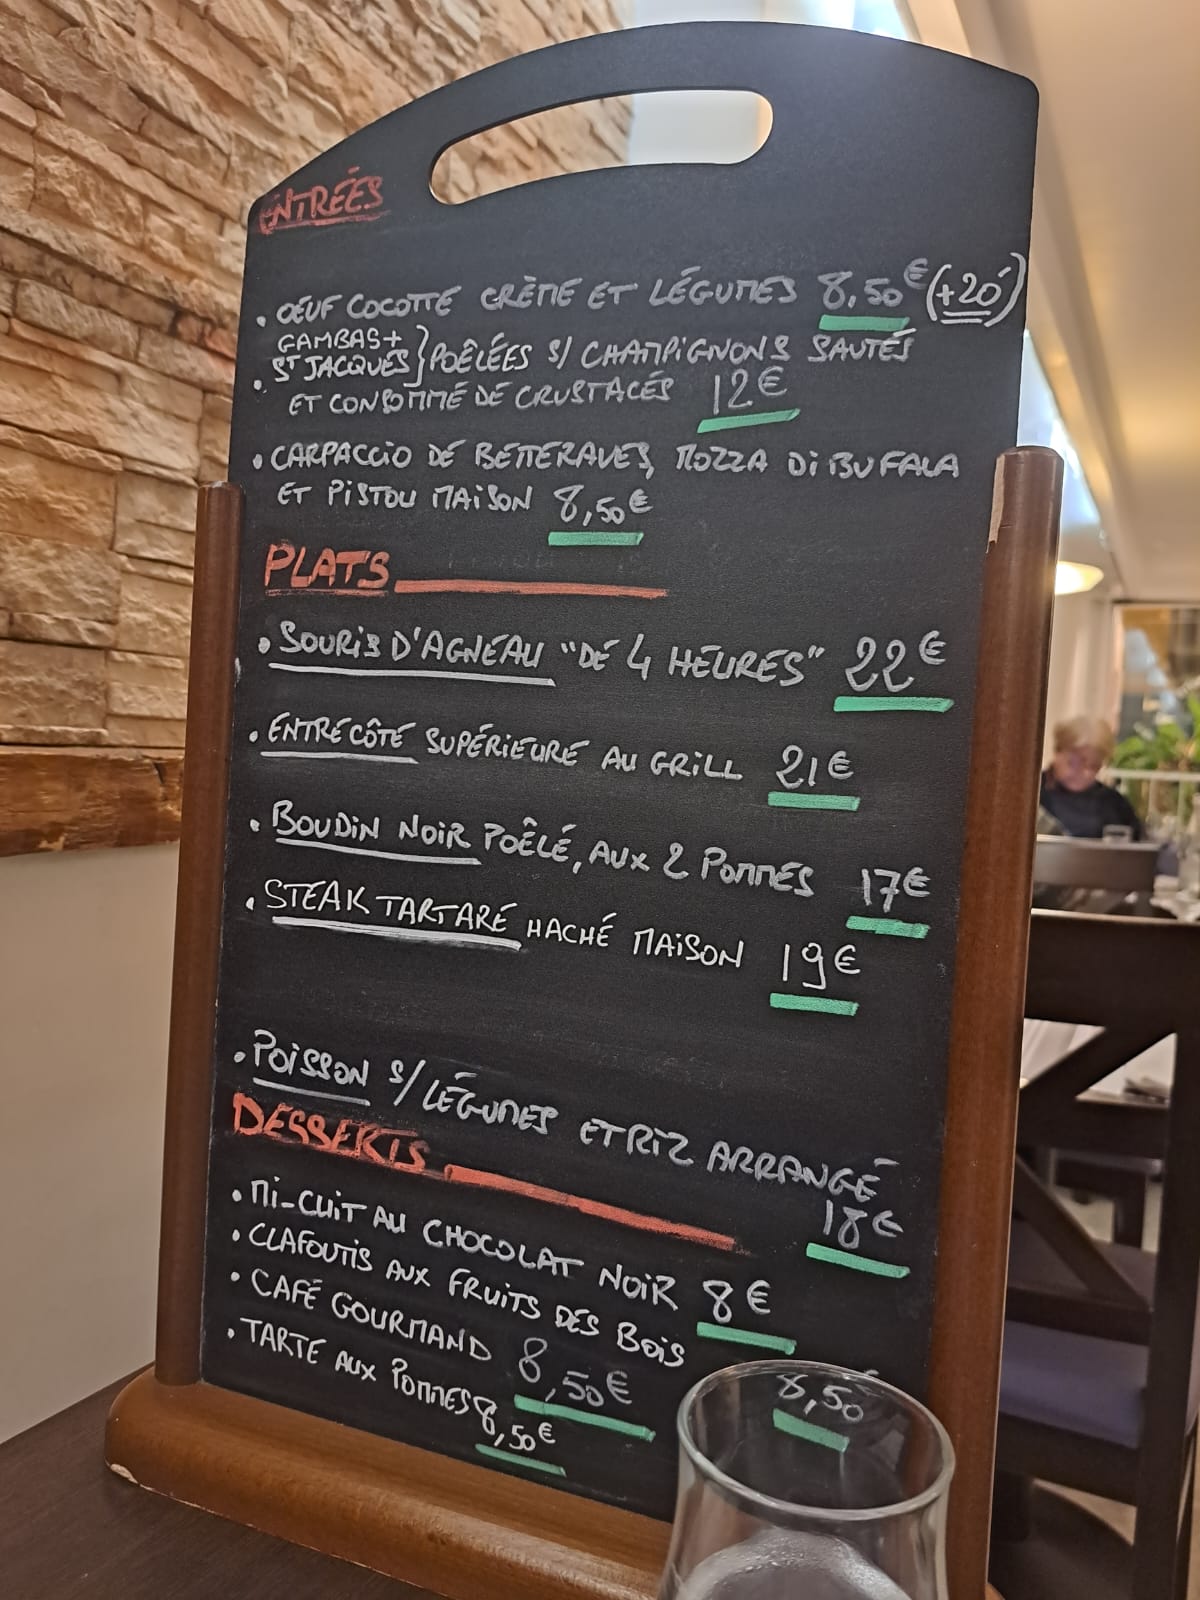 ENTRÉES
• OEUF COCOTTE CRÈME ET LÉGUMES 8,50€ (+20')
GAMBAS+
• ST JACQUES } POÊLÉES S/ CHAMPIGNONS SAUTÉS
ET CONSOMMÉ DE CRUSTACÉS 12€
• CARPACCIO DE BETTERAVES, MOZZA DI BUFALA
ET PISTOU MAISON 8,50€
PLATS
• SOURIS D'AGNEAU "DE 4 HEURES" 22€
• ENTRECÔTE SUPÉRIEURE AU GRILL 21€
• BOUDIN NOIR POÊLÉ, AUX 2 POMMES 17€
• STEAK TARTARE HACHÉ MAISON 19€
• POISSON S/ LÉGUMES ET RIZ ARRANGÉ
18€
DESSERTS
• MI-CUIT AU CHOCOLAT NOIR 8€
• CLAFOUTIS AUX FRUITS DES BOIS
8,50€
• CAFÉ GOURMAND 8,50€
• TARTE AUX POMMES 8,50€